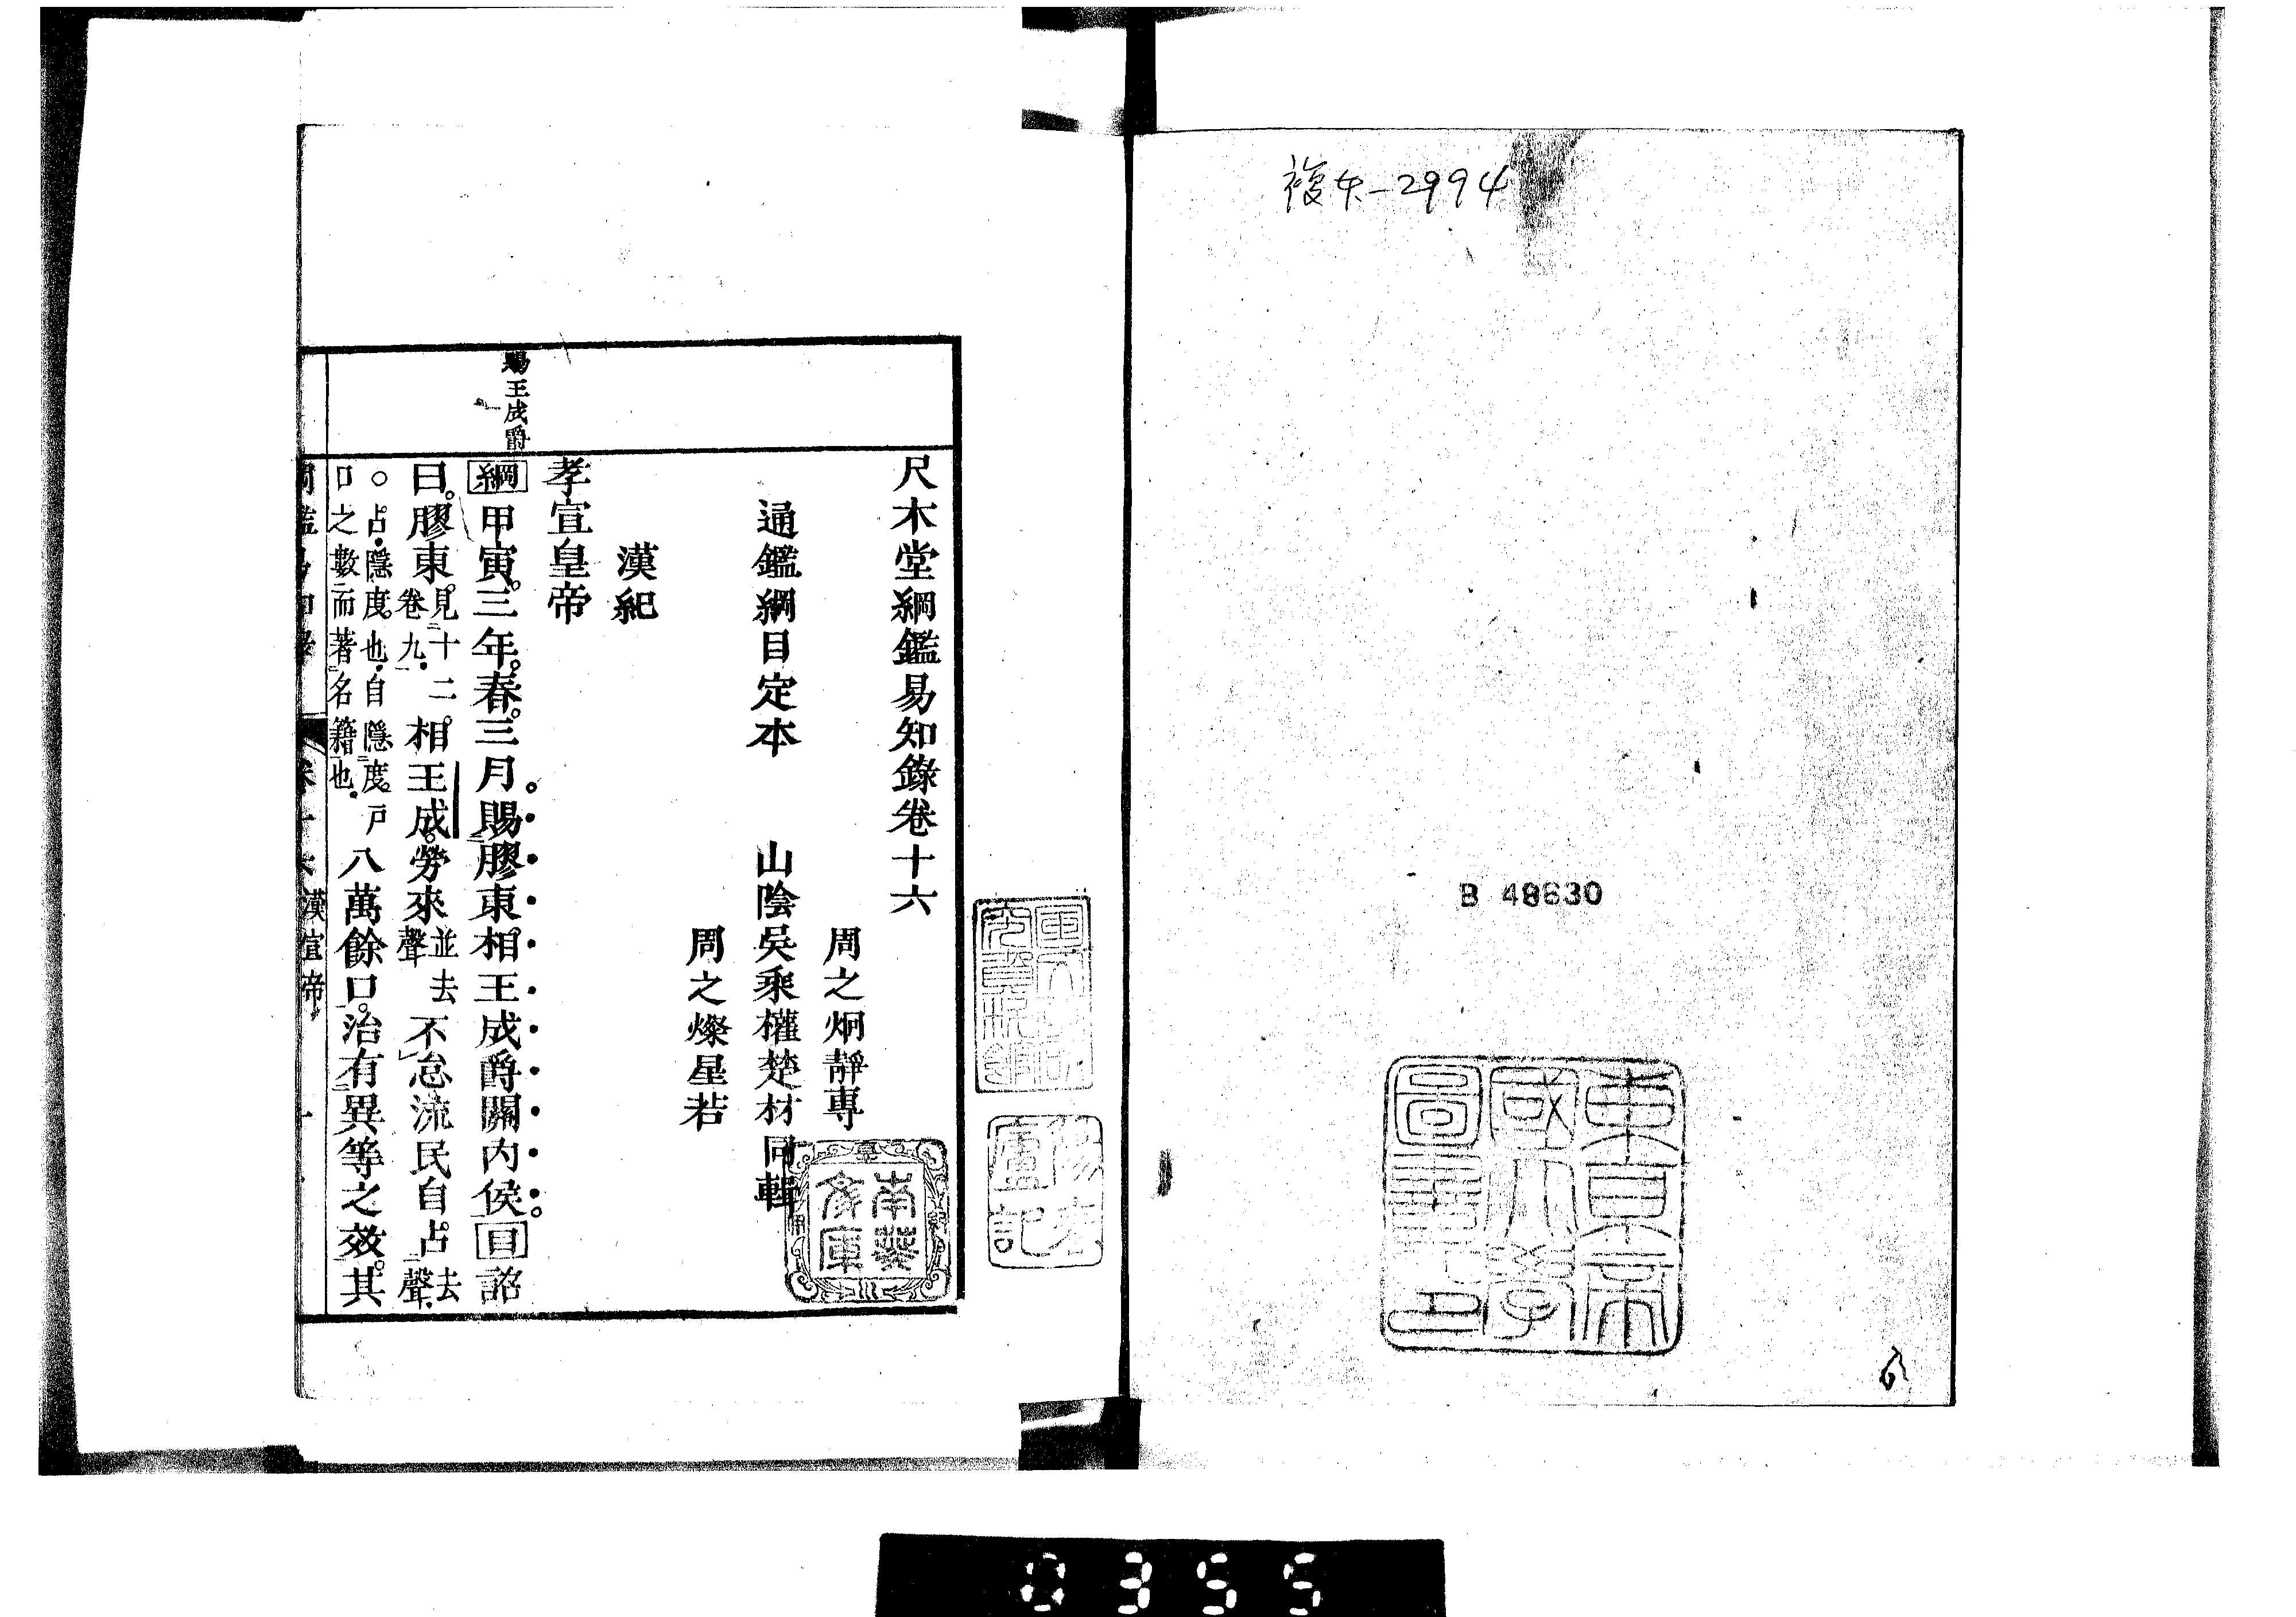 複矢-2994
B 48630
東京帝
國大學
圖書印
陽春
廬記
南葵
文庫
尺木堂綱鑑易知錄卷十六
周之炯靜專
通鑑綱目定本　山陰吳乘權楚材同輯
周之燦星若
漢紀
孝宣皇帝
賜王成爵
綱甲寅。三年。春。三月。賜膠東相王成爵關內侯。目詔
曰。膠東。見十二卷九。相王成。勞來並去聲不怠流民自占去聲。
○占。隱度。也。自隱度。戶口之數而著名籍也。八萬餘口。治有異等之效。其
漢宣帝
0355